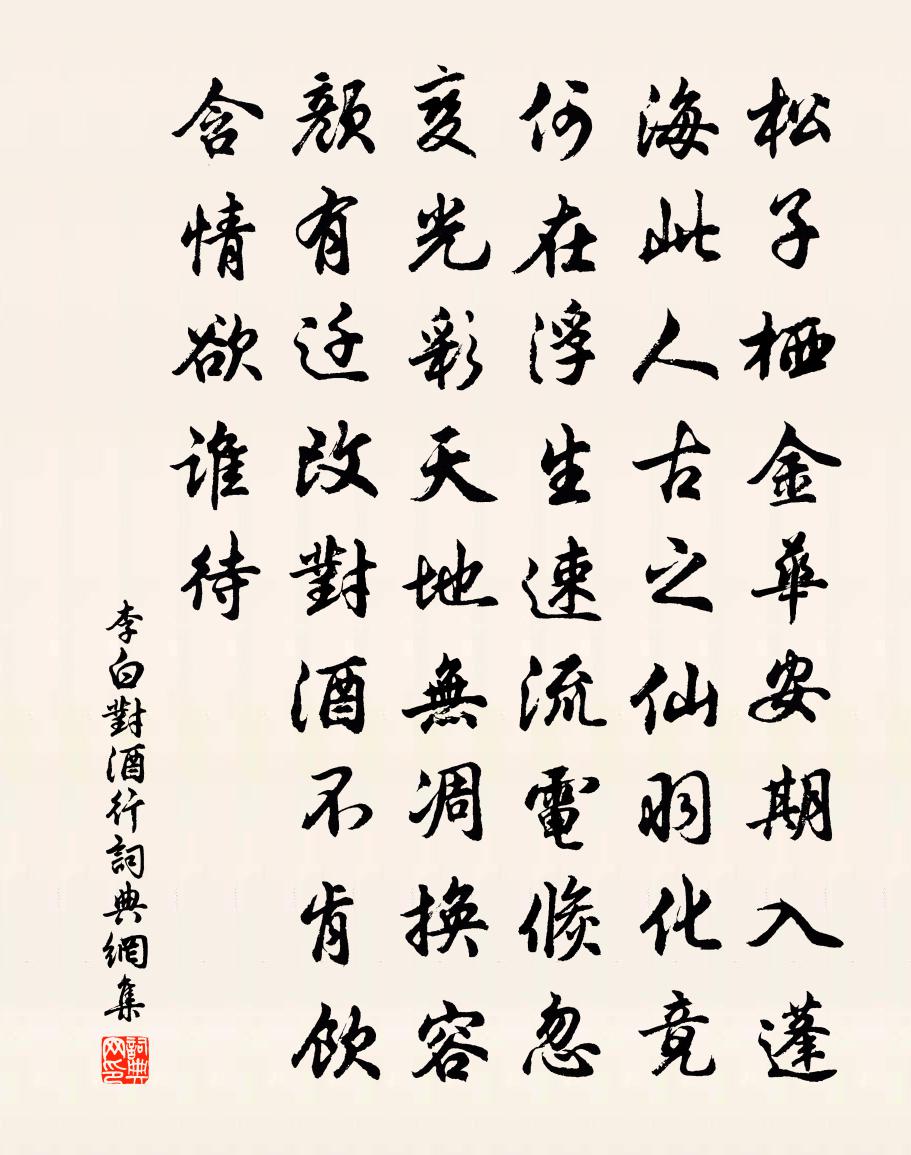 松子栖金華安期入蓬
海此人古之仙羽化竟
何在浮生速流電倏忽
變光彩天地無凋換容
顏有迁改對酒不肯飲
含情欲誰待
李白對酒行詞典網集
詞典网印